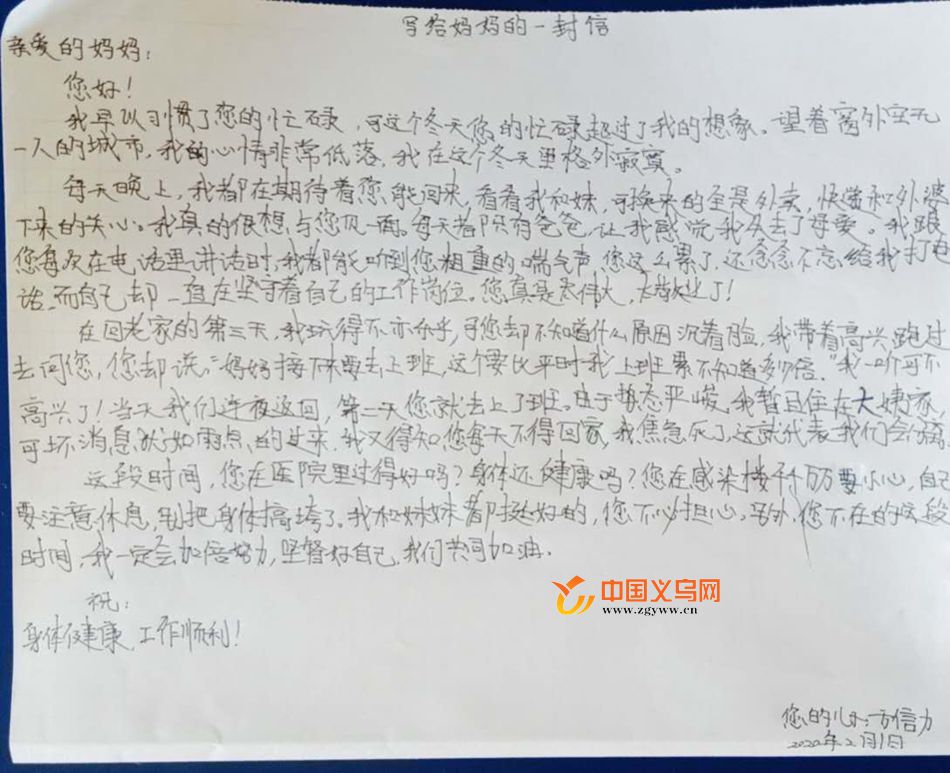 写给妈妈的一封信
亲爱的妈妈：
您好！
我早以习惯了您的忙碌，可这个冬天您的忙碌超过了我的想象。望着窗外空无
一人的城市，我的心情非常低落，我在这个冬天里格外寂寞。
每天晚上，我都在期待着您能回来，看看我和妹，可换来的全是外卖，快递和外婆
下来的关心。我真的很想与您见一面。每天都只有爸爸，让我感觉我失去了母爱。我跟
您每次在电话里讲话时，我都能听到您粗重的喘气声，您这么累了，还念念不忘给我打电
话，而自己却一直在坚守着自己的工作岗位。您真是太伟大，太敬业了！
在回老家的第三天，我玩得不亦乐乎，可您却不知道什么原因沉着脸，我带着高兴跑过
去问您，您却说：“妈妈接下来要去上班，这个要比平时我上班累不知道多少倍。”我一听可不
高兴了！当天我们连夜返回，第二天您就去上了班。由于势态严峻，我暂且住在大姨家，
可坏消息犹如雨点的过来，我又得知您每天不得回家，我焦急死了，这就代表我们会分隔
这段时间，您在医院里过得好吗？身体还健康吗？您在感染楼千千万万要小心，自己
要注意休息，别把身体搞垮了。我和妹妹都挺好的，您不必担心，另外，您不在的这段
时间，我一定会加倍努力，坚督好自己，我们共同加油。
祝：
身体健康，工作顺利！
您的儿子：方信力
2020年2月1日
中国义乌网
www.zgyww.cn